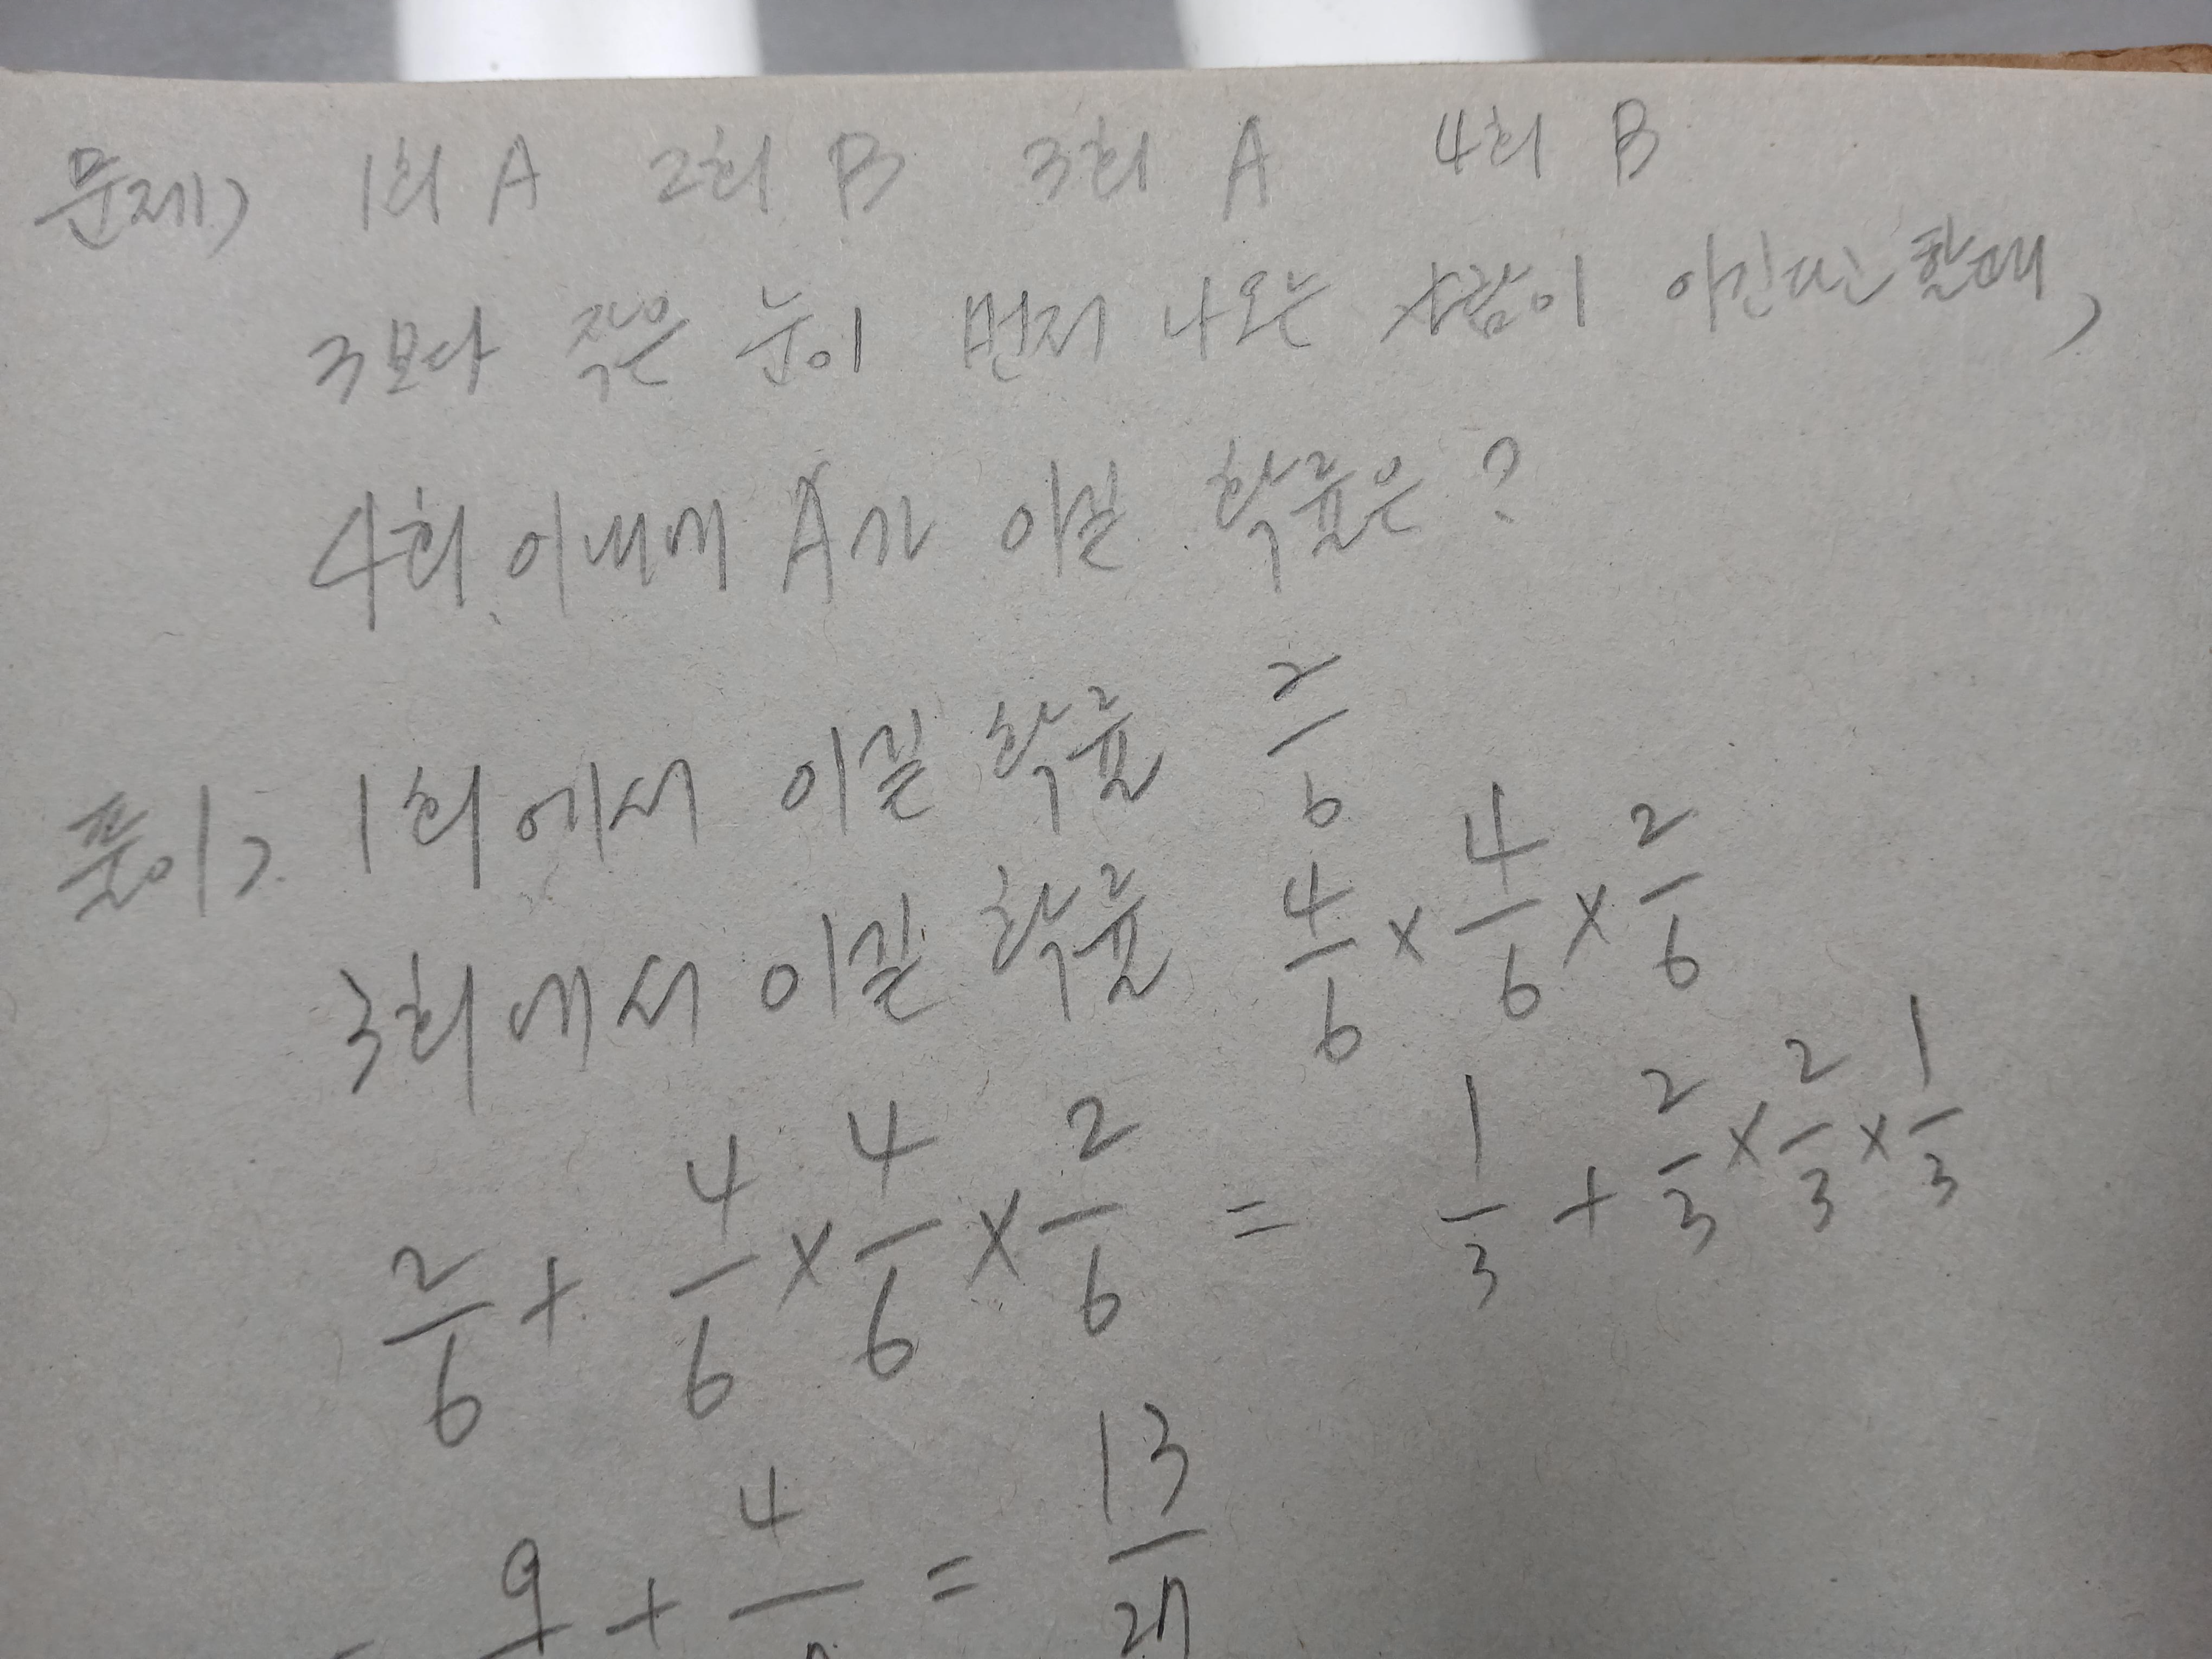 문제) 1회 A 2회 B 3회 A 4회 B
3보다 작은 눈이 먼저 나오는 사람이 이긴다고 할때,
4회 이내에 A가 이길 확률은?
풀이) 1회에서 이길 확률 2/6
3회에서 이길 확률 4/6 × 4/6 × 2/6
2/6 + 4/6 × 4/6 × 2/6 = 1/3 + 2/3 × 2/3 × 1/3
= 9 + 4 = 13/27